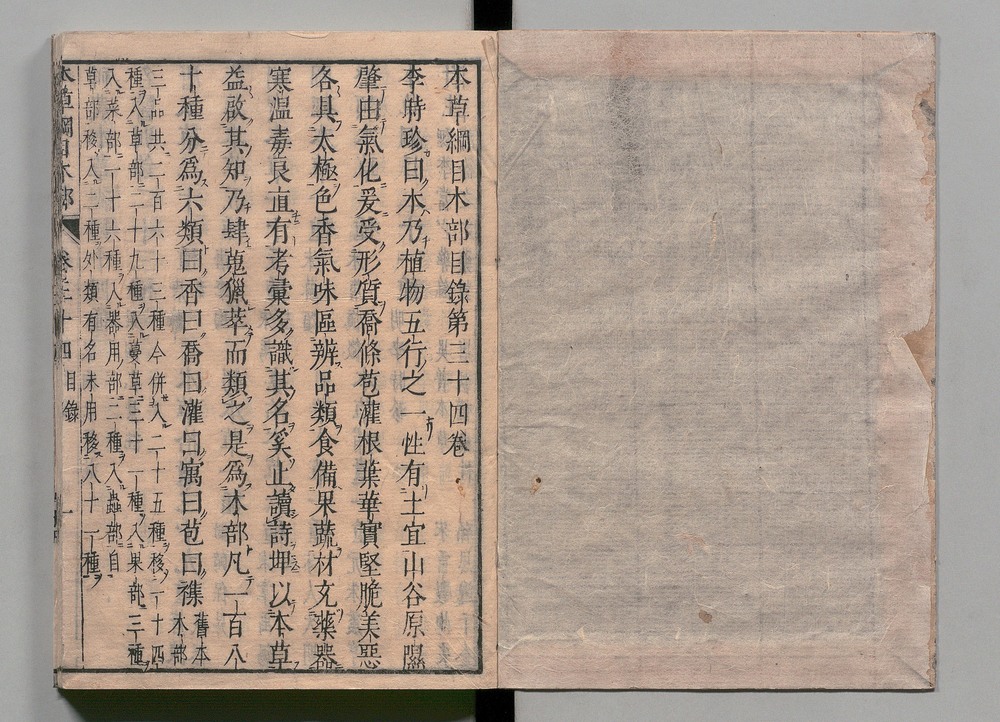 本草綱目木部目錄第三十四卷
李時珍曰木乃植物五行之一性有土宜山谷原隰
肇由氣化爰受形質喬條苞灌根葉華實堅脆美惡
各具太極色香氣味區辨品類食備果蔬材充藥器
寒溫毒良直有考彙多識其名奚止讀詩埤以本草
益啟其知乃肆蒐獵萃而類之是爲木部凡一百八
十種分爲六類曰香曰喬曰灌曰寓曰苞曰襍舊本木部
三品共二百六十三種今併入二十五種移一十四
種入草部二十九種入蔓草三十一種入果部三種
入菜部一十六種入器用部二種入蟲部自
草部移入二種外類有名未用移八十一種
本草綱目木部 卷之三十四 目錄 一